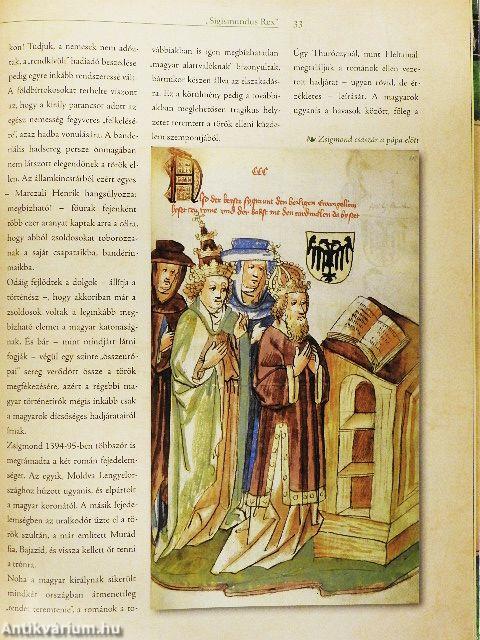 „Sigismundus Rex” 33
kon! Tudjuk, a nemesek nem adóz-
tak, a „rendkívüli” hadiadó beszedése
pedig egyre inkább rendszeressé vált.
A földbirtokosokat terhelte viszont
az, hogy a király parancsot adott az
egész nemesség fegyveres „felkelésé-
re”, azaz hadba vonulására. A bande-
riális hadsereg persze önmagában
nem látszott elegendőnek a török el-
len. Az államkincstárból ezért egyes
– Marczali Henrik hangsúlyozza:
megbízható! – főurak fejenként
több ezer aranyat kaptak arra a célra,
hogy abból zsoldosokat toborozza-
nak a saját csapataikba, bandériu-
maikba.
Odáig fejlődtek a dolgok – állítja a
történész –, hogy akkoriban már a
zsoldosok voltak a leginkább meg-
bízható elemei a magyar katonaság-
nak. És bár – mint mindjárt látni
fogják – végül egy szinte „összeuró-
pai” sereg verődött össze a török
megfékezésére, azért a régebbi ma-
gyar történetírók mégis inkább csak
a magyarok dicsőséges hadjáratairól
írnak.
Zsigmond 1394-95-ben többször is
megtámadta a két román fejedelem-
séget. Az egyik, Moldva Lengyelor-
szághoz húzott ugyanis, és elpártolt
a magyar koronától. A másik fejede-
lemségben az uralkodót űzte el a tö-
rök szultán, a már említett Murád
fia, Bajazid, és vissza kellett őt tenni
a trónra.
Noha a magyar királynak sikerült
mindkét országban átmenetileg
„rendet teremtenie”, a románok a to-
vábbiakban is igen megbízhatatlan
„magyar alattvalóknak” bizonyultak,
bármikor készen állva az elszakadás-
ra. Ez a körülmény pedig a további-
akban meglehetősen tragikus hely-
zetet teremtett a török elleni küzde-
lem szempontjából.
Úgy Thuróczynál, mint Heltainál
megtaláljuk a románok ellen veze-
tett hadjárat – ugyan rövid, de ér-
zékletes – leírását. A magyarok
ugyanis a havasok között, főleg a
Zsigmond császár a pápa előtt
Antikvárium.hu